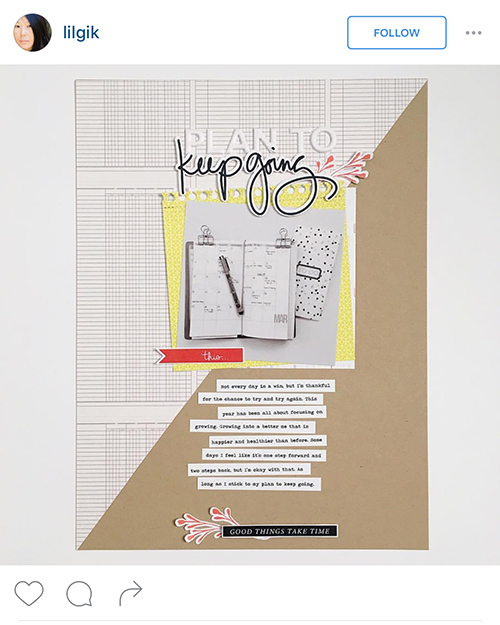 lilgik
FOLLOW
PLAN TO
keep going
MAR
this
Not every day is a win, but i'm thankful
for the chance to try and try again. This
year has been all about focusing on
growing. Growing into a better me that is
happier and healthier than before. Some
days I feel like it's one step forward and
two steps back, but i'm okay with that. As
long as I stick to my plan to keep going.
GOOD THINGS TAKE TIME